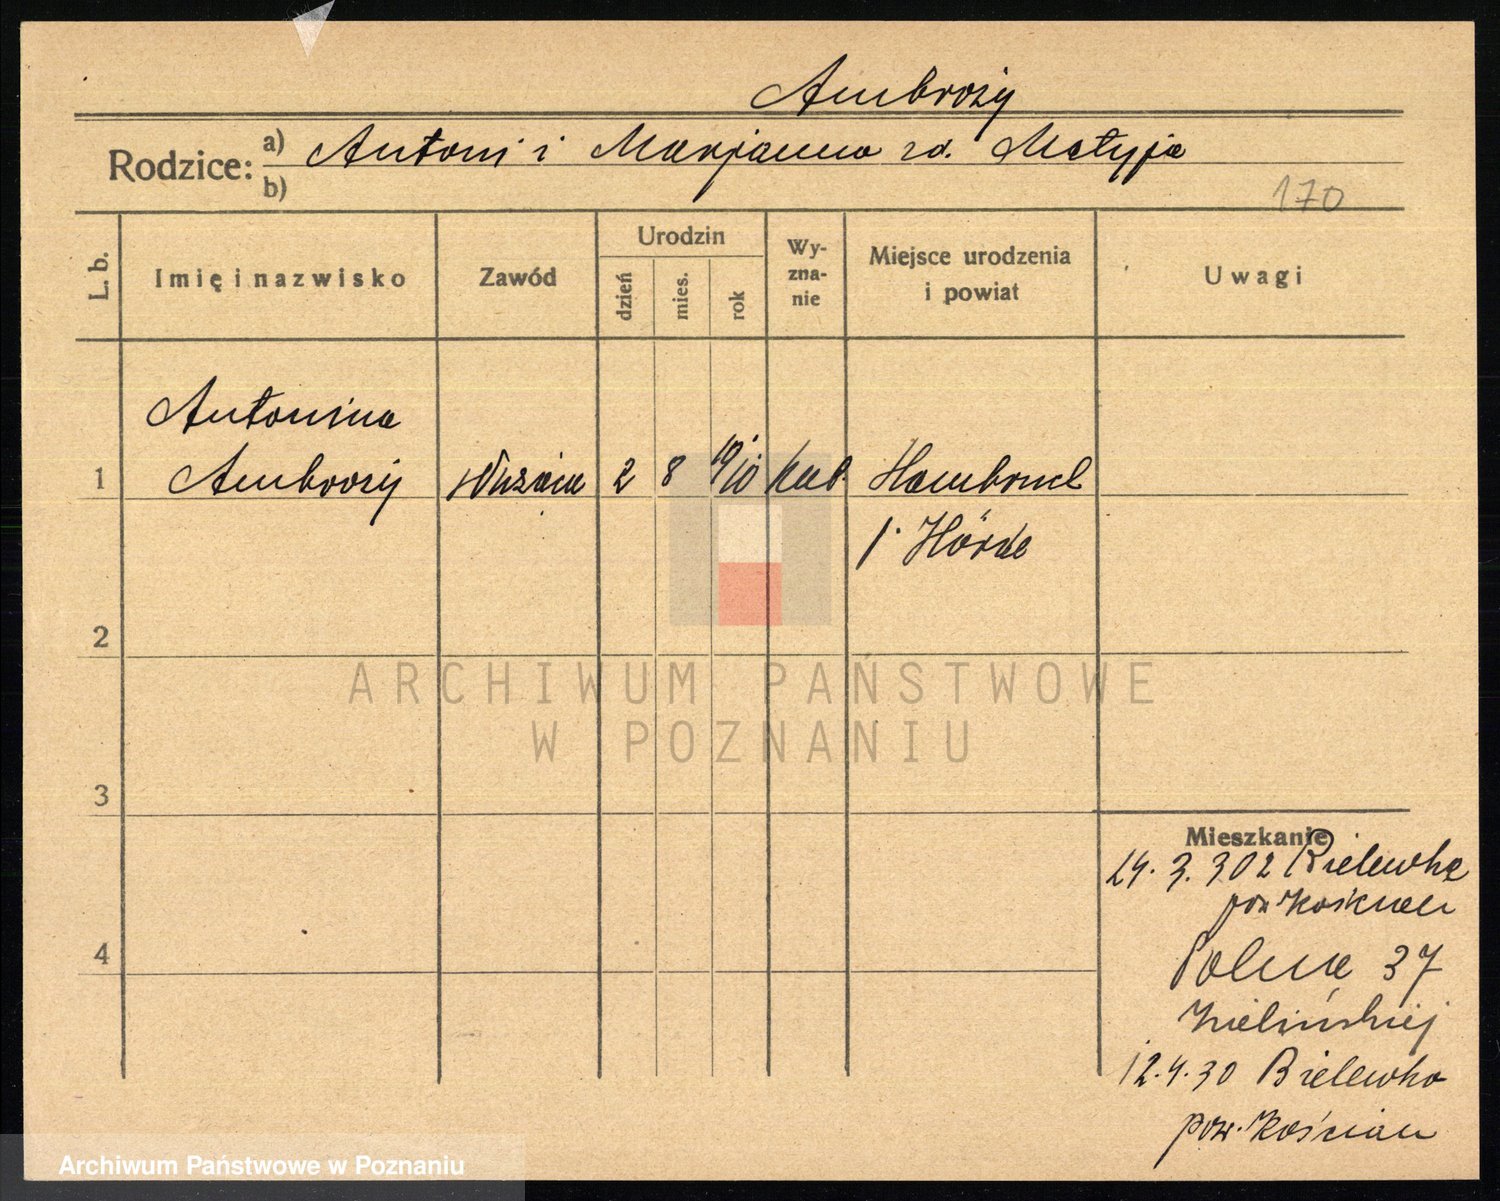 Ambroży
Rodzice: a) Antoni i Marjanna zd. Matyja
b)
170
L. b. Imię i nazwisko Zawód Urodzin dzień mies. rok Wyznanie Miejsce urodzenia i powiat Uwagi
Antonina
1 Ambroży służąca 2 8 1910 kat. Hombruch
p. Hörde
2
ARCHIWUM PAŃSTWOWE
W POZNANIU
3
Mieszkanie
24. 3. 302 Bielewka
pow Kościan
4
Polna 37
Zielińskiej
12.4.30 Bielewko
pow. Kościan
Archiwum Państwowe w Poznaniu